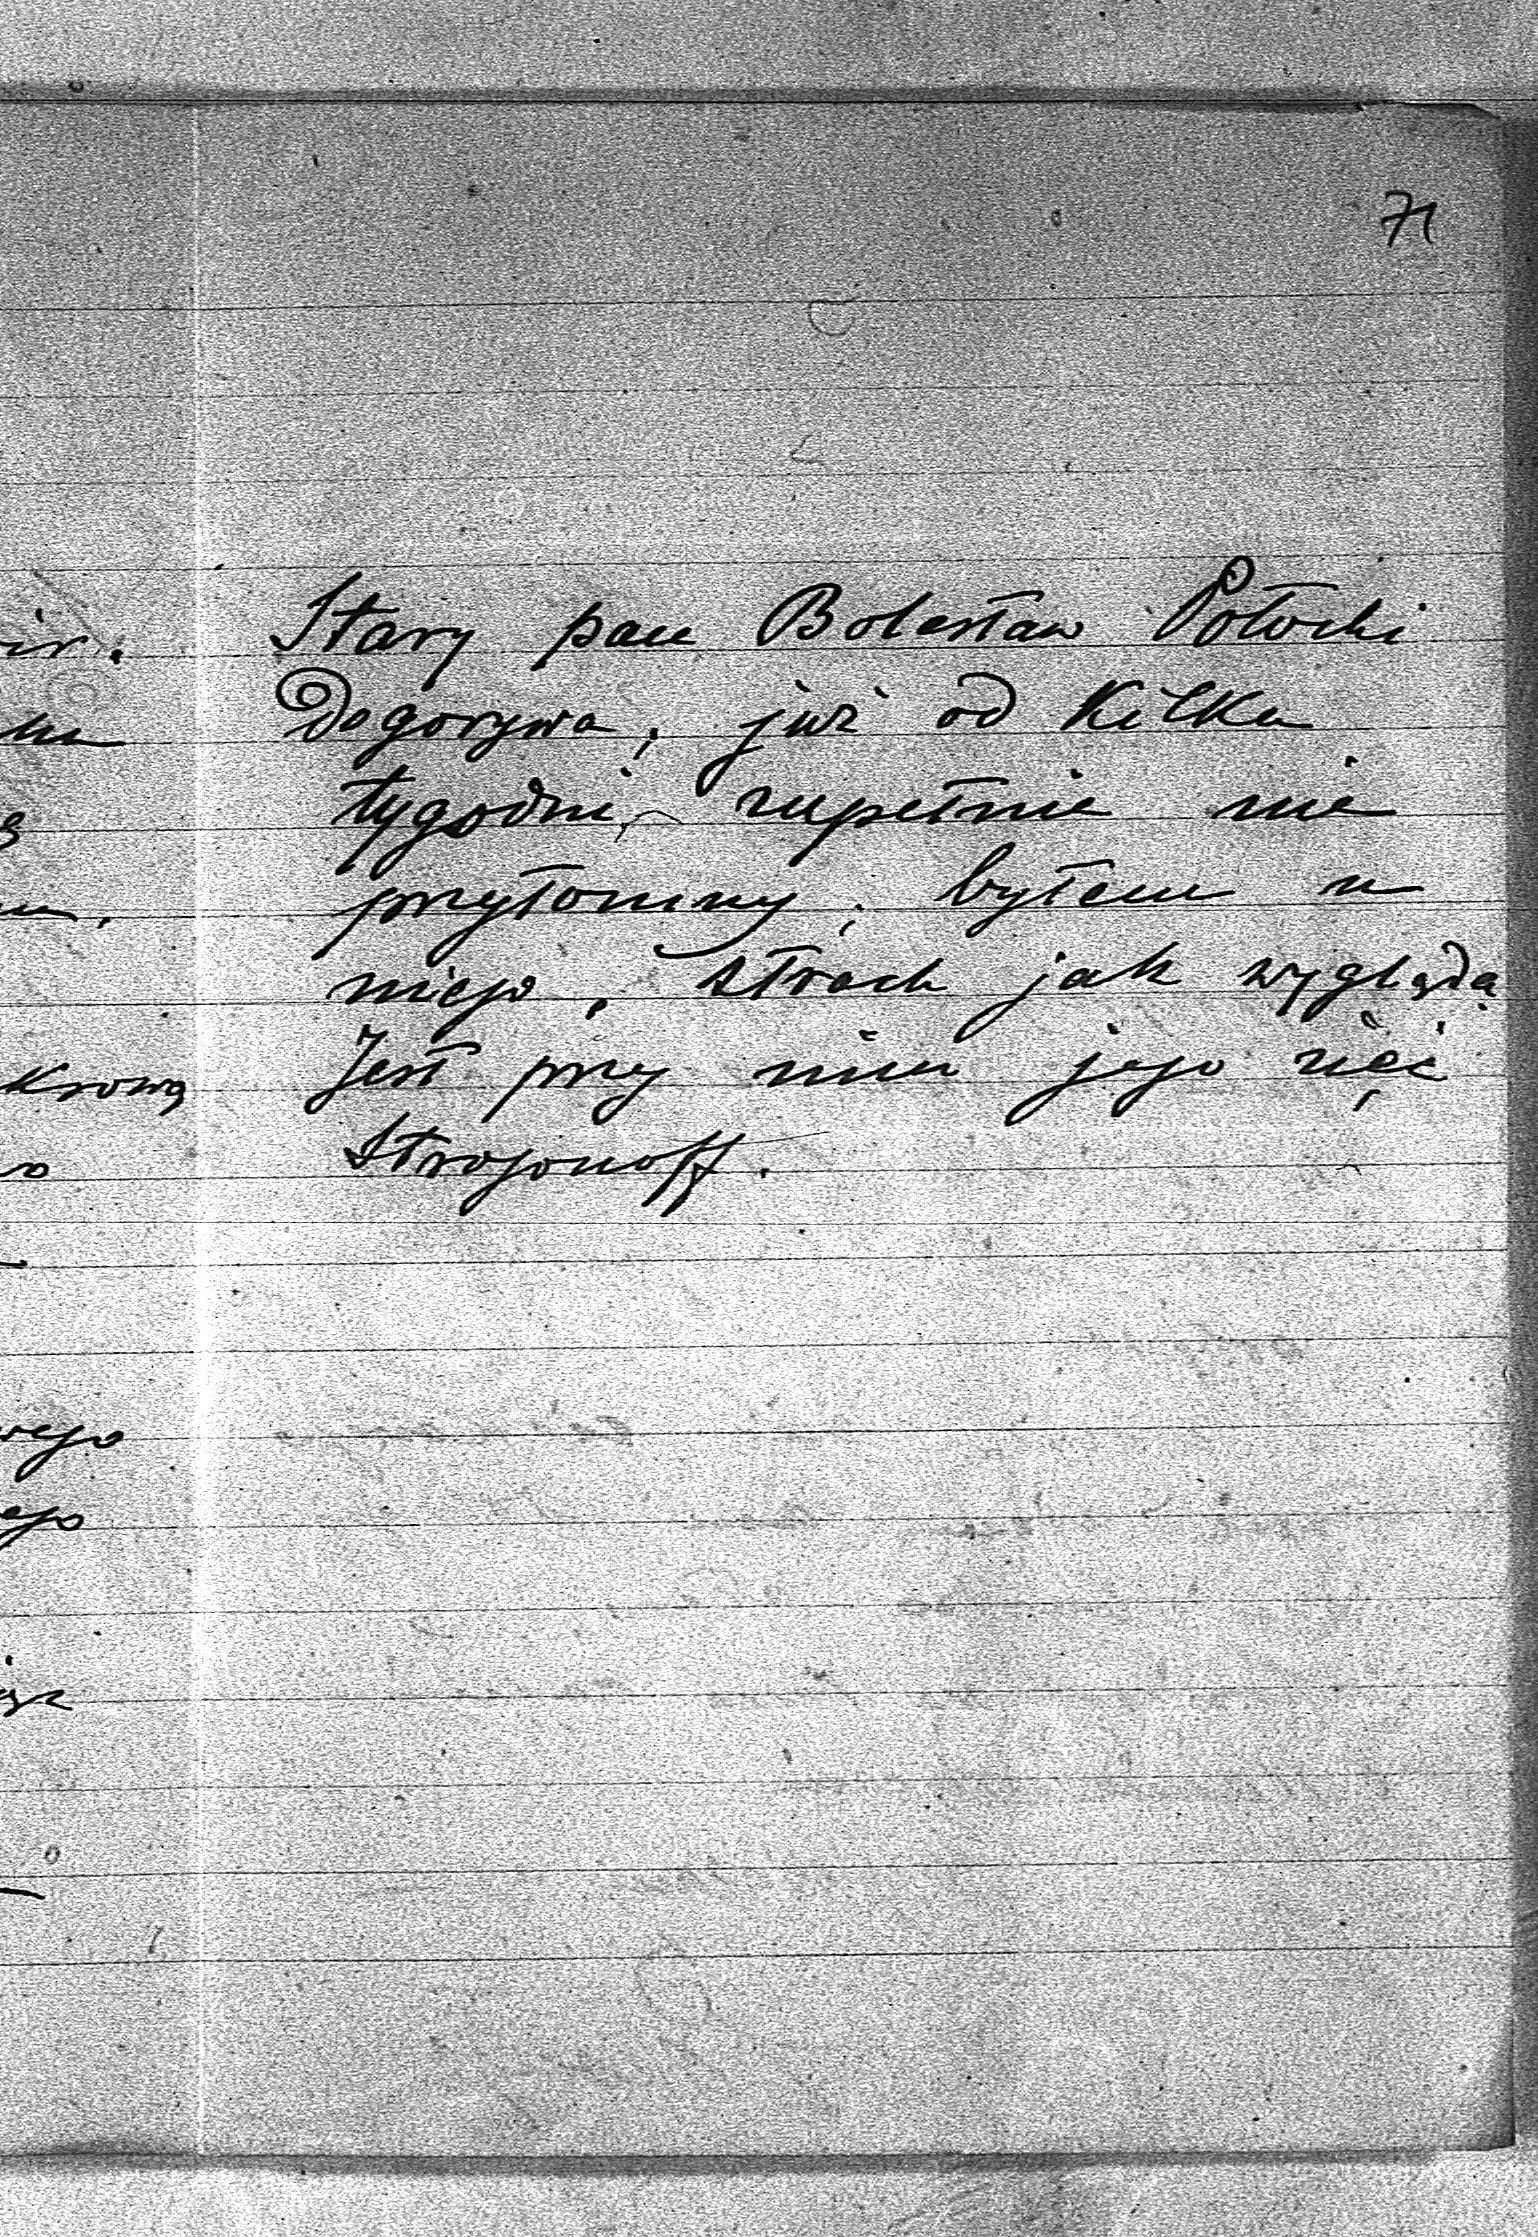 71
Stary pan Bolesław Potocki
Dogorywa; już od kilku
tygodni zupełnie nie
przytomny; byłem u
niego, strach jak wygląda.
Jest przy nim jego zięć
Strogonoff.
krową